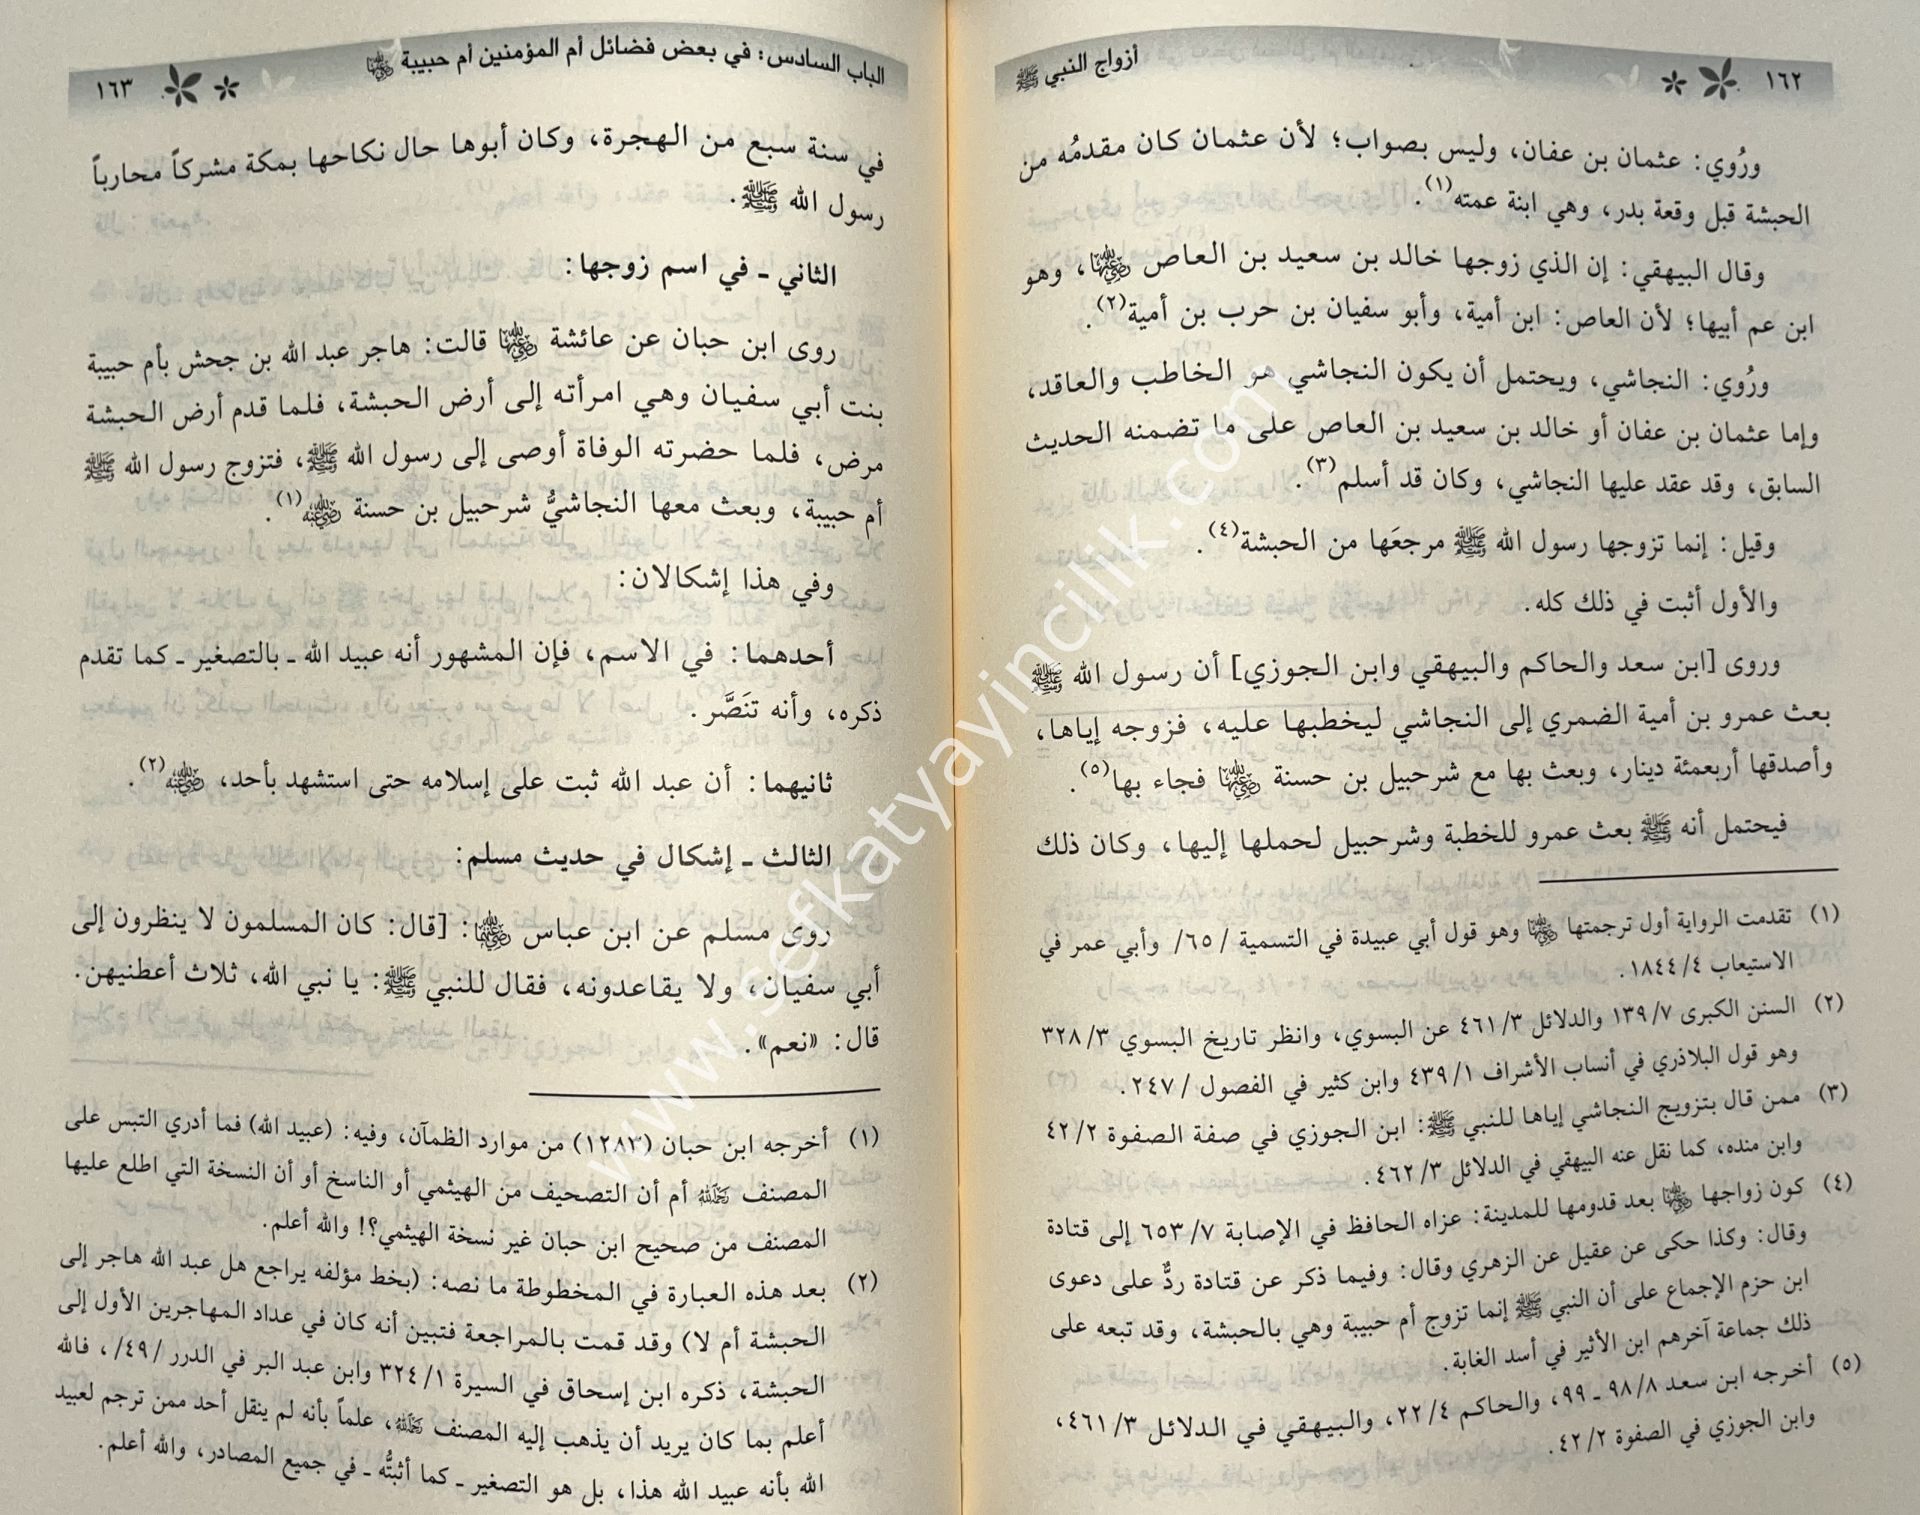 ١٦٢
أزواج النبي ﷺ
ورُوي: عثمان بن عفان، وليس بصواب؛ لأن عثمان كان مقدمُه من
الحبشة قبل وقعة بدر، وهي ابنة عمته(١).
وقال البيهقي: إن الذي زوجها خالد بن سعيد بن العاص رضي الله عنها، وهو
ابن عم أبيها؛ لأن العاص: ابن أمية، وأبو سفيان بن حرب بن أمية(٢).
ورُوي: النجاشي، ويحتمل أن يكون النجاشي هو الخاطب والعاقد،
وإما عثمان بن عفان أو خالد بن سعيد بن العاص على ما تضمنه الحديث
السابق، وقد عقد عليها النجاشي، وكان قد أسلم(٣).
وقيل: إنما تزوجها رسول الله ﷺ مرجعَها من الحبشة(٤).
والأول أثبت في ذلك كله.
وروى [ابن سعد والحاكم والبيهقي وابن الجوزي] أن رسول الله ﷺ
بعث عمرو بن أمية الضمري إلى النجاشي ليخطبها عليه، فزوجه إياها،
وأصدقها أربعمئة دينار، وبعث بها مع شرحبيل بن حسنة رضي الله عنها فجاء بها(٥).
فيحتمل أنه ﷺ بعث عمرو للخطبة وشرحبيل لحملها إليها، وكان ذلك
(١) تقدمت الرواية أول ترجمتها رضي الله عنها وهو قول أبي عبيدة في التسمية /٦٥/ وأبي عمر في
الاستيعاب ١٨٤٤/٤.
(٢) السنن الكبرى ١٣٩/٧ والدلائل ٤٦١/٣ عن البسوي، وانظر تاريخ البسوي ٣٢٨/٣
وهو قول البلاذري في أنساب الأشراف ٤٣٩/١ وابن كثير في الفصول /٢٤٧.
(٣) ممن قال بتزويج النجاشي إياها للنبي ﷺ: ابن الجوزي في صفة الصفوة ٤٢/٢
وابن منده، كما نقل عنه البيهقي في الدلائل ٤٦٢/٣.
(٤) كون زواجها رضي الله عنها بعد قدومها للمدينة: عزاه الحافظ في الإصابة ٦٥٣/٧ إلى قتادة
وقال: وكذا حكى عن عقيل عن الزهري وقال: وفيما ذكر عن قتادة ردٌّ على دعوى
ابن حزم الإجماع على أن النبي ﷺ إنما تزوج أم حبيبة وهي بالحبشة، وقد تبعه على
ذلك جماعة آخرهم ابن الأثير في أسد الغابة.
(٥) أخرجه ابن سعد ٩٨/٨ ـ ٩٩، والحاكم ٢٢/٤، والبيهقي في الدلائل ٤٦١/٣،
وابن الجوزي في الصفوة ٤٢/٢.
الباب السادس: في بعض فضائل أم المؤمنين أم حبيبة رضي الله عنها
١٦٣
في سنة سبع من الهجرة، وكان أبوها حال نكاحها بمكة مشركاً محارباً
رسول الله ﷺ.
الثاني ـ في اسم زوجها:
روى ابن حبان عن عائشة رضي الله عنها قالت: هاجر عبد الله بن جحش بأم حبيبة
بنت أبي سفيان وهي امرأته إلى أرض الحبشة، فلما قدم أرض الحبشة
مرض، فلما حضرته الوفاة أوصى إلى رسول الله ﷺ، فتزوج رسول الله ﷺ
أم حبيبة، وبعث معها النجاشيُّ شرحبيل بن حسنة رضي الله عنه(١).
وفي هذا إشكالان:
أحدهما: في الاسم، فإن المشهور أنه عبيد الله ـ بالتصغير ـ كما تقدم
ذكره، وأنه تنَصَّر.
ثانيهما: أن عبد الله ثبت على إسلامه حتى استشهد بأحد، رضي الله عنه(٢).
الثالث ـ إشكال في حديث مسلم:
روى مسلم عن ابن عباس رضي الله عنهما: [قال: كان المسلمون لا ينظرون إلى
أبي سفيان، ولا يقاعدونه، فقال للنبي ﷺ: يا نبي الله، ثلاث أعطنيهن.
قال: «نعم».
(١) أخرجه ابن حبان (١٢٨٢) من موارد الظمآن، وفيه: (عبيد الله) فما أدري التبس على
المصنف رحمه الله أم أن التصحيف من الهيثمي أو الناسخ أو أن النسخة التي اطلع عليها
المصنف من صحيح ابن حبان غير نسخة الهيثمي؟! والله أعلم.
(٢) بعد هذه العبارة في المخطوطة ما نصه: (بخط مؤلفه يراجع هل عبد الله هاجر إلى
الحبشة أم لا) وقد قمت بالمراجعة فتبين أنه كان في عداد المهاجرين الأول إلى
الحبشة، ذكره ابن إسحاق في السيرة ٣٢٤/١ وابن عبد البر في الدرر /٤٩/، فالله
أعلم بما كان يريد أن يذهب إليه المصنف رحمه الله، علماً بأنه لم ينقل أحد ممن ترجم لعبيد
الله بأنه عبيد الله هذا، بل هو التصغير ـ كما أثبتُّه ـ في جميع المصادر، والله أعلم.
www.sefkatyayincilik.com